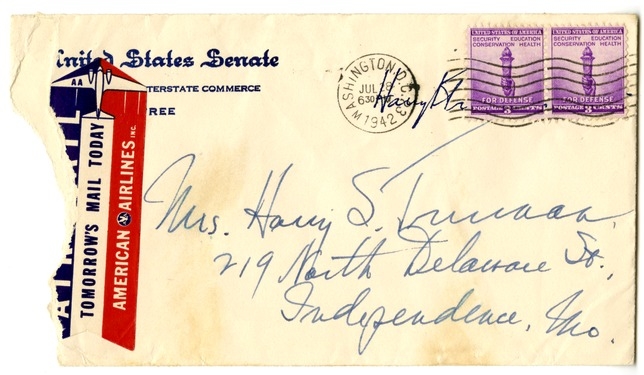 United States Senate
TERSTATE COMMERCE
REE
AA
TOMORROW'S MAIL TODAY
AMERICAN AIRLINES INC.
WASHINGTON, D.C.
JUL 28
630 PM
1942
Harry
UNITED STATES OF AMERICA
SECURITY EDUCATION
CONSERVATION HEALTH
FOR DEFENSE
POSTAGE 3 CENTS
UNITED STATES OF AMERICA
SECURITY EDUCATION
CONSERVATION HEALTH
FOR DEFENSE
POSTAGE 3 CENTS
Mrs. Harry S. Truman
219 North Delaware St.,
Independence, Mo.